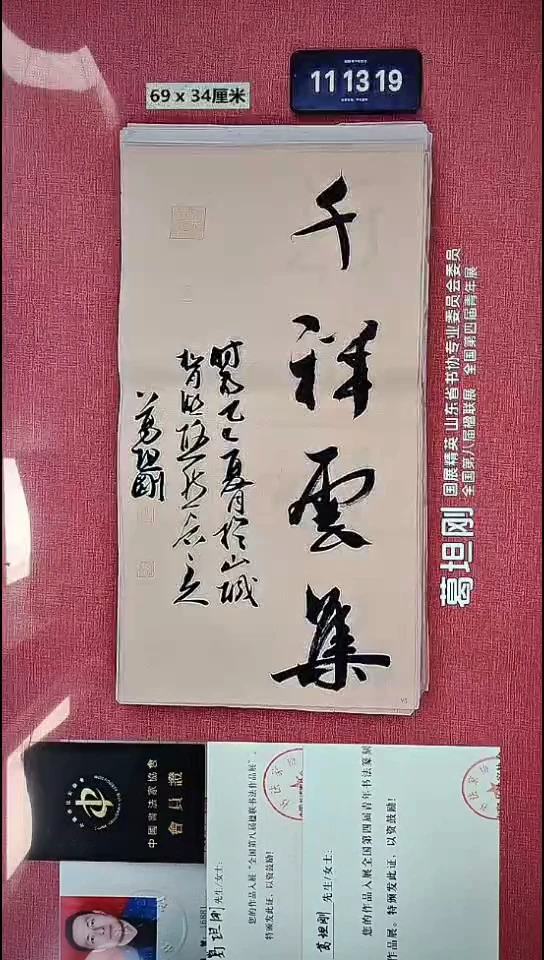 69 x 34厘米
11 13 19
千祥雲集
時在乙巳夏月於山城
葛坦刚
葛坦刚
国展精英 山东省书协专业委员会委员
全国第八届楹联展 全国第四届青年展
中國書法家協會
會員證
葛坦刚 先生/女士:
您的作品入展“全国第八届楹联书法作品展”。
特颁发此证，以资鼓励!
葛坦刚 先生/女士:
您的作品入展全国第四届青年书法篆刻
作品展。特颁发此证，以资鼓励!